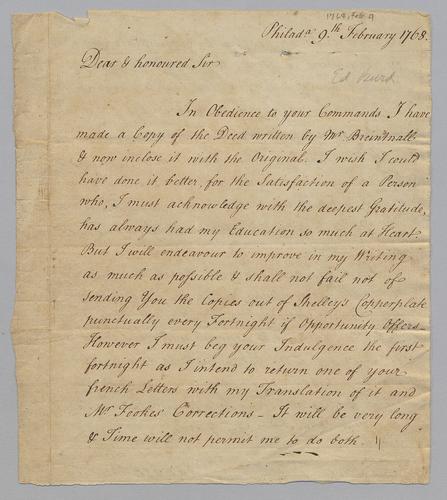 1768, Feb. 9
Philada 9th February 1768.
Ed Burd
Dear & honoured Sir
In Obedience to your Commands I have
made a Copy of the Deed written by Mr Breintnall
& now inclose it with the Original. I wish I could
have done it better, for the Satisfaction of a Person
who, I must acknowledge with the deepest Gratitude,
has always had my Education so much at Heart
But I will endeavour to improve in my Writing
as much as possible & shall not fail not of
sending You the Copies out of Shelley's Copperplate
punctually every Fortnight if Opportunity Offers
However I must beg your Indulgence the first
fortnight as I intend to return one of your
french Letters with my Translation of it and
Mr Fookes' Corrections – It will be very long
& Time will not permit me to do both.